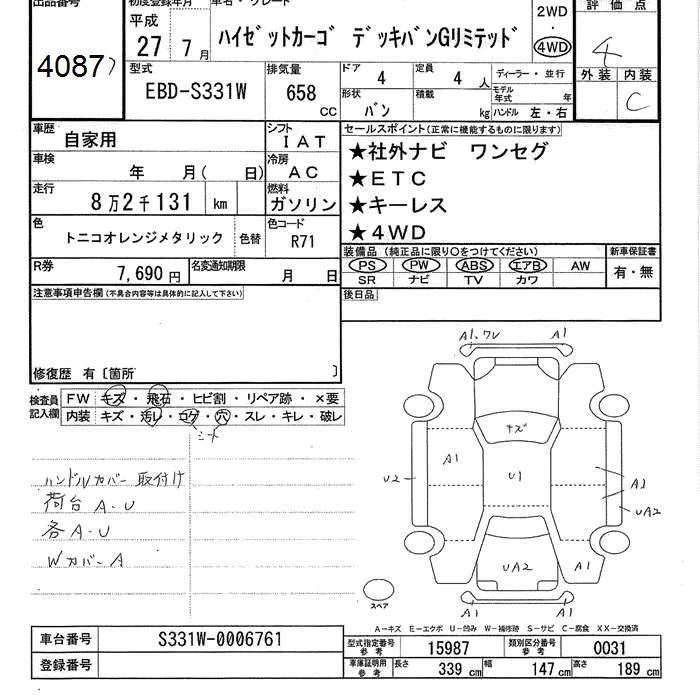 出品番号
4087
初度登録年月
平成
27 7月
車名・グレード
ハイゼットカーゴ デッキバンGリミテッド
2WD
・
4WD
評価点
4
外装 内装
C
型式
EBD-S331W
排気量
658
cc
ドア
4
定員
4 人
ディーラー・並行
形状
バン
積載
kg
モデル年式
年
ハンドル 左・右
車歴
自家用
シフト
IAT
車検
年 月( 日)
冷房
AC
走行
8万2千131 km
燃料
ガソリン
色
トニコオレンジメタリック
色替
色コード
R71
R券
7,690 円
名変通知期限
月 日
セールスポイント(正常に機能するものに限ります)
★社外ナビ ワンセグ
★ETC
★キーレス
★4WD
装備品(純正品に限り○をつけてください)
PS PW ABS エアB AW
SR ナビ TV カワ
新車保証書
有・無
後日品
注意事項申告欄(不具合内容等は具体的に記入して下さい)
修復歴 有〔箇所 〕
検査員
記入欄
FW キズ・飛石・ヒビ割・リペア跡・×要
内装 キズ・汚レ・コゲ・穴・スレ・キレ・破レ
シート
ハンドルカバー取付け
荷台A.U
各A.U
WカバーA
A1、ワレ
A1
キズ
A1
U1
U2
A1
UA2
UA2
A1
A1
A1
スペア
A−キズ E−エクボ U−凹み W−補修跡 S−サビ C−腐食 XX−交換済
車台番号
S331W-0006761
登録番号
型式指定番号
参考
15987
類別区分番号
参考
0031
車庫証明用
参考
長さ
339 cm
幅
147 cm
高さ
189 cm